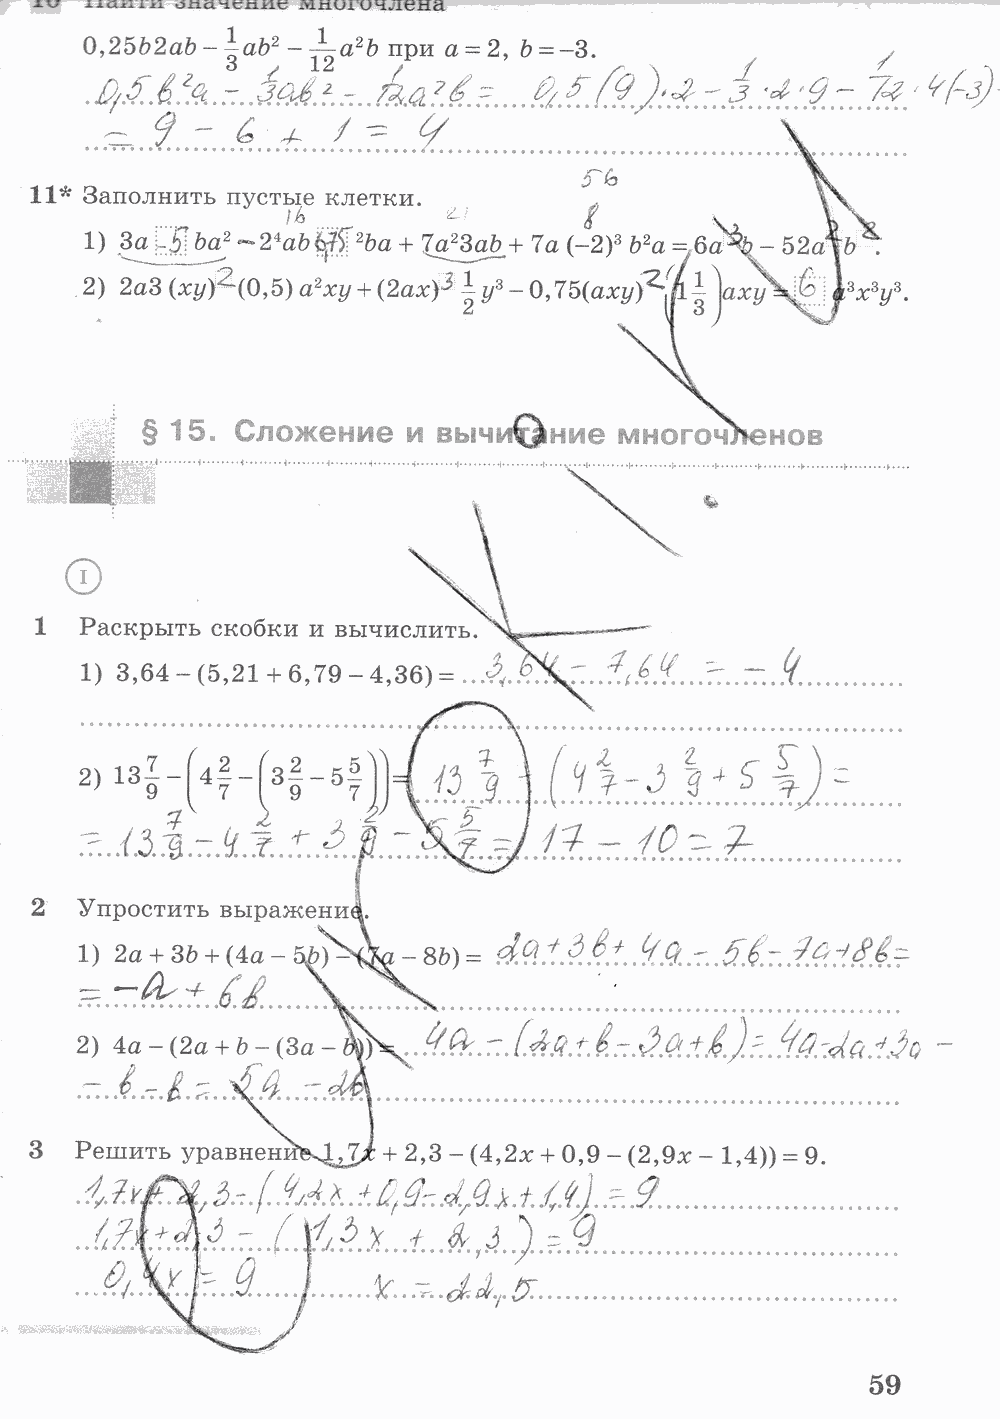 10 Найти значение многочлена
0,25b2ab − 1/3 ab² − 1/12 a²b при a = 2, b = −3.
0,5 b²a − 1/3 ab² − 1/12 a²b = 0,5 (9)·2 − 1/3 ·2·9 − 1/12 ·4(−3)
= 9 − 6 + 1 = 4
56
16 21 8
11* Заполнить пустые клетки.
1) 3a −5 ba² − 2⁴ab ²ba + 7a²3ab + 7a (−2)³ b²a = 6a³b − 52a²b².
2) 2a3 (xy)² (0,5) a²xy + (2ax)³ 1/2 y³ − 0,75(axy)² (1 1/3) axy = 6 a³x³y³.
§ 15. Сложение и вычитание многочленов
I
1 Раскрыть скобки и вычислить.
1) 3,64 − (5,21 + 6,79 − 4,36) = 3,64 − 7,64 = − 4
2) 13 7/9 − (4 2/7 − (3 2/9 − 5 5/7)) = 13 7/9 − (4 2/7 − 3 2/9 + 5 5/7) =
= 13 7/9 − 4 2/7 + 3 2/9 − 5 5/7 = 17 − 10 = 7
2 Упростить выражение.
1) 2a + 3b + (4a − 5b) − (7a − 8b) = 2a + 3b + 4a − 5b − 7a + 8b =
= −a + 6b
2) 4a − (2a + b − (3a − b)) = 4a − (2a + b − 3a + b) = 4a − 2a + 3a −
− b − b = 5a − 2b
3 Решить уравнение 1,7x + 2,3 − (4,2x + 0,9 − (2,9x − 1,4)) = 9.
1,7x + 2,3 − (4,2x + 0,9 − 2,9x + 1,4) = 9
1,7x + 2,3 − (1,3x + 2,3) = 9
0,4x = 9 x = 22,5
59